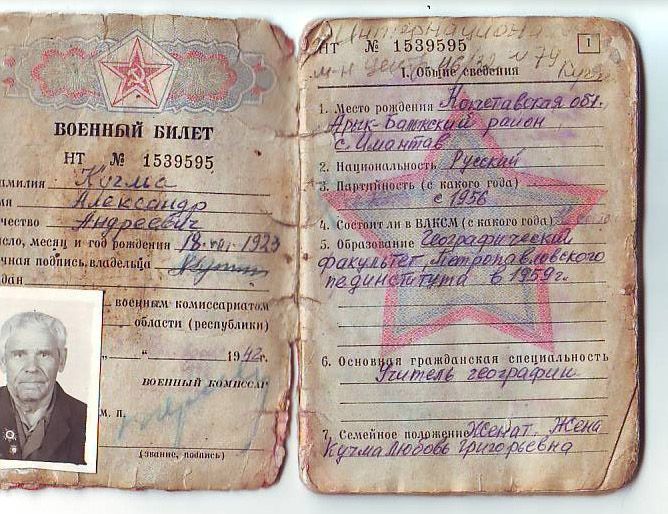 ВОЕННЫЙ БИЛЕТ
НТ № 1539595
амилия Кучма
мя Александр
чество Андреевич
исло, месяц и год рождения 18 1923
чная подпись владельца
дан
военным комиссариатом
области (республики)
„ “ 1942 г.
ВОЕННЫЙ КОМИССАР
М. П.
(звание, подпись)
Интернациона
НТ № 1539595
1
м-н 74
I. Общие сведения
1. Место рождения Кокчетавская обл.
Арык-Балыкский район
с. Имантав
2. Национальность Русский
3. Партийность (с какого года)
с 1956
4. Состоит ли в ВЛКСМ (с какого года)
5. Образование Географический
факультет Петропавловского
пединститута в 1959 г.
6. Основная гражданская специальность
Учитель географии
7. Семейное положение Женат. Жена
Кучма Любовь Григорьевна